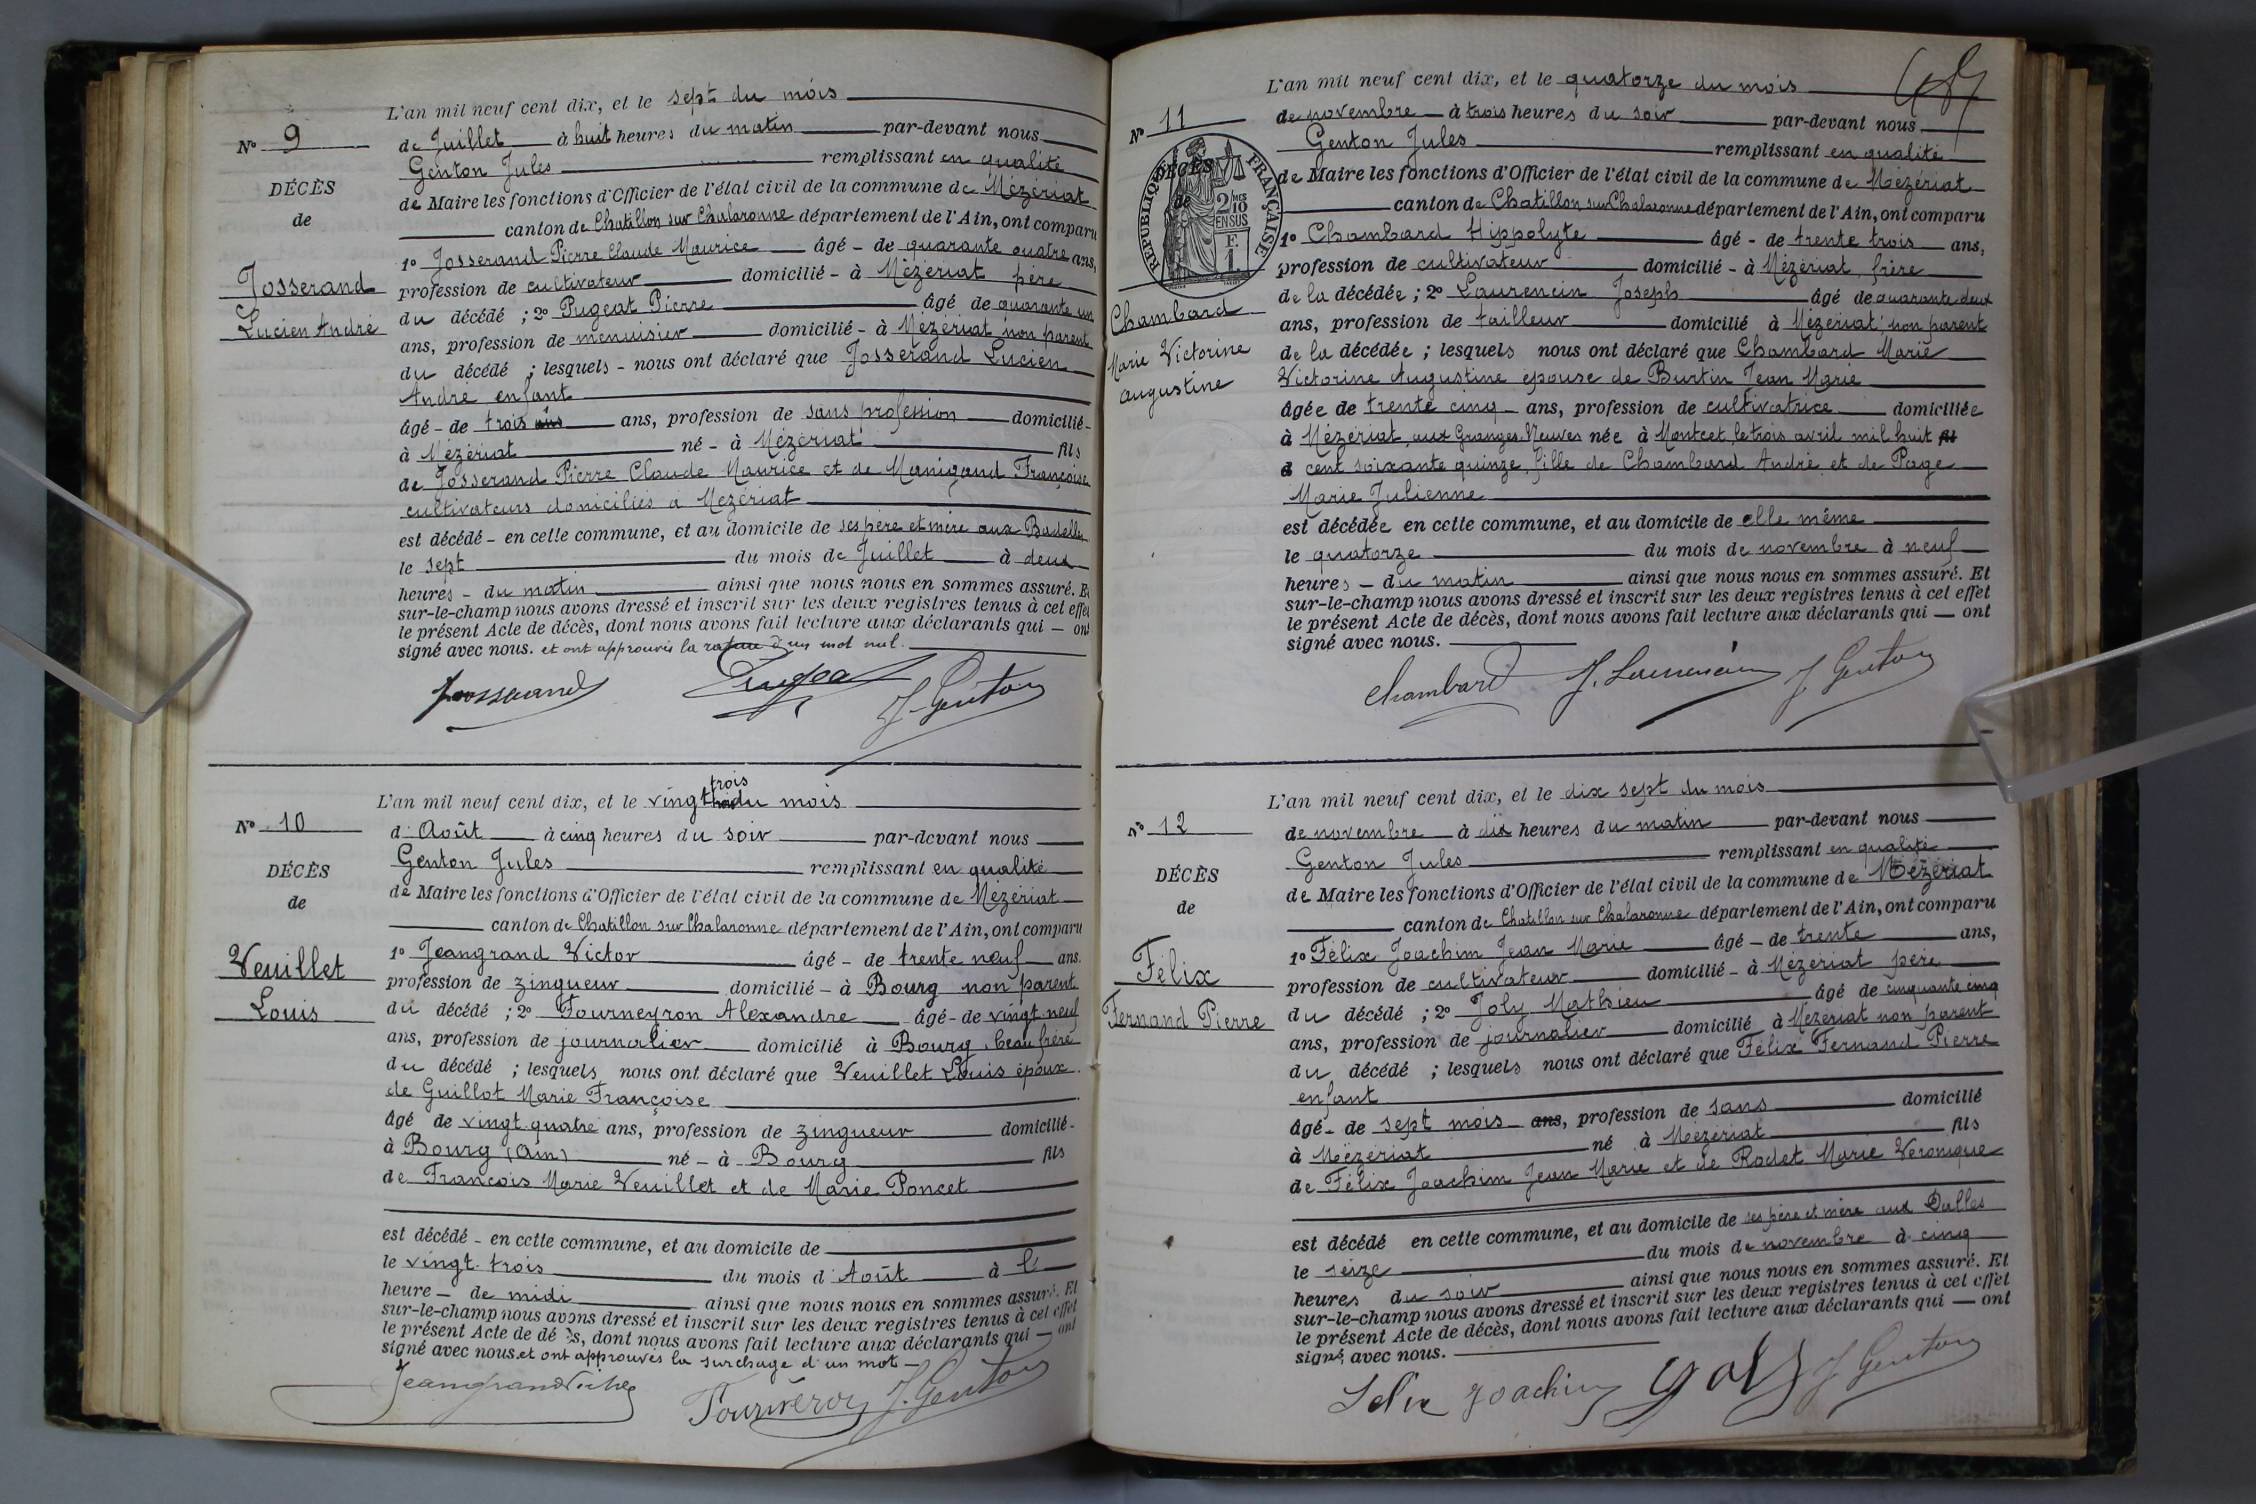 L'an mil neuf cent dix, et le sept du mois
N° 9
de Juillet à huit heures du matin par-devant nous
Genton Jules remplissant en qualité
DÉCÈS
de Maire les fonctions d'Officier de l'état civil de la commune de Mézériat
de
canton de Chatillon sur Chalaronne département de l'Ain, ont comparu
1° Josserand Pierre Claude Maurice âgé - de quarante quatre ans,
Josserand
profession de cultivateur domicilié - à Mézériat père
du décédé ; 2° Pugeat Pierre âgé de quarante un
Lucien André
ans, profession de menuisier domicilié - à Mézériat non parent
du décédé ; lesquels - nous ont déclaré que Josserand Lucien
André enfant
âgé - de trois ans ans, profession de sans profession domicilié -
à Mézériat né - à Mézériat fils
de Josserand Pierre Claude Maurice et de Manigand Françoise
cultivateurs domiciliés à Mézériat
est décédé - en cette commune, et au domicile de ses père et mère aux Badelles
le sept du mois de Juillet à deux
heures - du matin ainsi que nous nous en sommes assuré. Et
sur-le-champ nous avons dressé et inscrit sur les deux registres tenus à cet effet
le présent Acte de décès, dont nous avons fait lecture aux déclarants qui — ont
signé avec nous. et ont approuvés la rature d'un mot nul.
Josserand Pugeat J. Genton
L'an mil neuf cent dix, et le vingt trois du mois
N° 10
d'Août à cinq heures du soir par-devant nous
Genton Jules remplissant en qualité
DÉCÈS
de Maire les fonctions d'Officier de l'état civil de la commune de Mézériat
de
canton de Chatillon sur Chalaronne département de l'Ain, ont comparu
1° Jeangrand Victor âgé - de trente neuf ans.
Veuillet
profession de zingueur domicilié - à Bourg non parent
Louis
du décédé ; 2° Fourneyron Alexandre âgé - de vingt neuf
ans, profession de journalier domicilié à Bourg, beau frère
du décédé ; lesquels nous ont déclaré que Veuillet Louis époux
de Guillot Marie Françoise
âgé de vingt quatre ans, profession de zingueur domicilié -
à Bourg (Ain) né - à Bourg fils
de François Marie Veuillet et de Marie Poncet
est décédé - en cette commune, et au domicile de
le vingt trois du mois d'Août à
heure — de midi ainsi que nous nous en sommes assuré. Et
sur-le-champ nous avons dressé et inscrit sur les deux registres tenus à cet effet
le présent Acte de décès, dont nous avons fait lecture aux déclarants qui — ont
signé avec nous. et ont approuvés la surchage d'un mot —
J. Genton
L'an mil neuf cent dix, et le quatorze du mois
N° 11
de novembre à trois heures du soir par-devant nous
Genton Jules remplissant en qualité
DÉCÈS
de Maire les fonctions d'Officier de l'état civil de la commune de Mézériat
de
RÉPUBLIQUE FRANÇAISE
2/10 EN SUS
F. 1.
canton de Chatillon sur Chalaronne département de l'Ain, ont comparu
1° Chambard Hippolyte âgé - de trente trois ans,
profession de cultivateur domicilié - à Mézériat, frère
de la décédée ; 2° Laurencin Joseph âgé de quarante deux
Chambard
ans, profession de tailleur domicilié à Mézériat, non parent
Marie Victorine
de la décédée ; lesquels nous ont déclaré que Chambard Marie
augustine
Victorine Augustine épouse de Burtin Jean Marie
âgée de trente cinq ans, profession de cultivatrice domiciliée
à Mézériat, aux Granges Neuves née à Montcet, le trois avril mil huit
cent soixante quinze, fille de Chambard André et de Page
Marie Julienne
est décédée en cette commune, et au domicile de elle même
le quatorze du mois de novembre à neuf
heures - du matin ainsi que nous nous en sommes assuré. Et
sur-le-champ nous avons dressé et inscrit sur les deux registres tenus à cet effet
le présent Acte de décès, dont nous avons fait lecture aux déclarants qui — ont
signé avec nous.
Chambard J. Laurencin J. Genton
L'an mil neuf cent dix, et le dix sept du mois
N° 12
de novembre à dix heures du matin par-devant nous
Genton Jules remplissant en qualité
DÉCÈS
de Maire les fonctions d'Officier de l'état civil de la commune de Mézériat
de
canton de Chatillon sur Chalaronne département de l'Ain, ont comparu
1° Félix Joachim Jean Marie âgé - de trente ans,
Félix
profession de cultivateur domicilié - à Mézériat père
Fernand Pierre
du décédé ; 2° Joly Mathieu âgé de cinquante cinq
ans, profession de journalier domicilié à Mézériat non parent
du décédé ; lesquels nous ont déclaré que Félix Fernand Pierre
enfant
âgé - de sept mois ans, profession de sans domicilié
à Mézériat né à Mézériat fils
de Félix Joachim Jean Marie et de Rodet Marie Véronique
est décédé en cette commune, et au domicile de ses père et mère aux Dalles
le seize du mois de novembre à cinq
heures du soir ainsi que nous nous en sommes assuré. Et
sur-le-champ nous avons dressé et inscrit sur les deux registres tenus à cet effet
le présent Acte de décès, dont nous avons fait lecture aux déclarants qui — ont
signé avec nous.
Félix Joachim Joly J. Genton